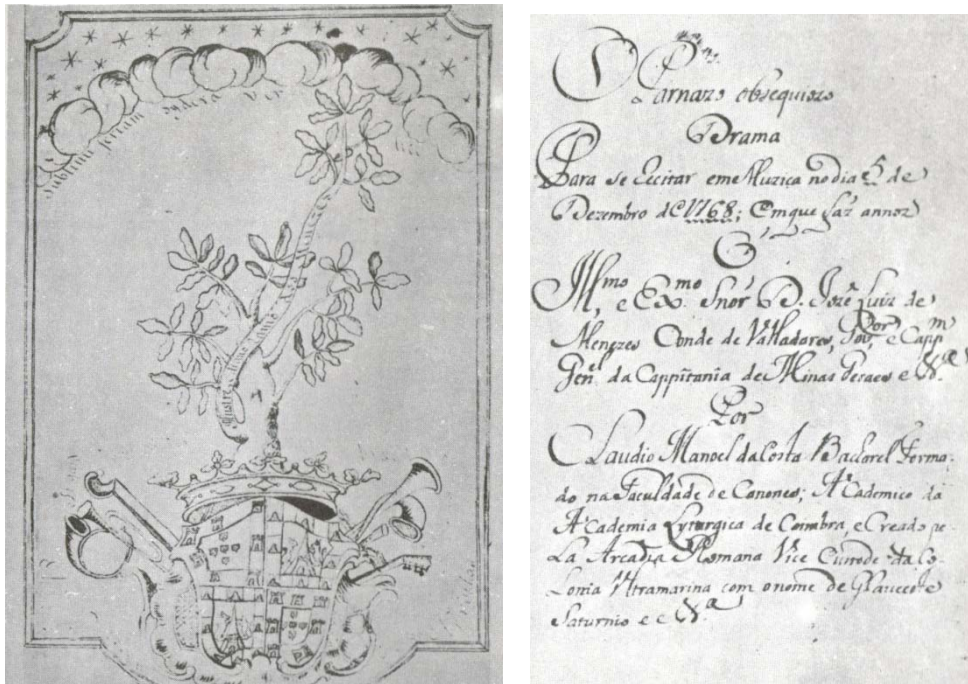 O
Parnazo obsequiozo
Drama
Para se Recitar em Muzica no dia 5 de
Dezembro de 1768; em que faz annoz
O
Illmo, e Exmo Snor D. Joze Luiz de
Menezes Conde de Valladares, Govor, e Cappm
Genel da Cappitania de Minas Geraes e &a.
Por
Claudio Manoel da Costa Bacharel Forma-
do na Faculdade de Canones; Academico da
Academia Lyturgica de Coimbra, e Creado pe
La Arcadia Romana Vice Custode da Co-
Lonia Ultramarina com o nome de Glauceste
Saturnio e e &a